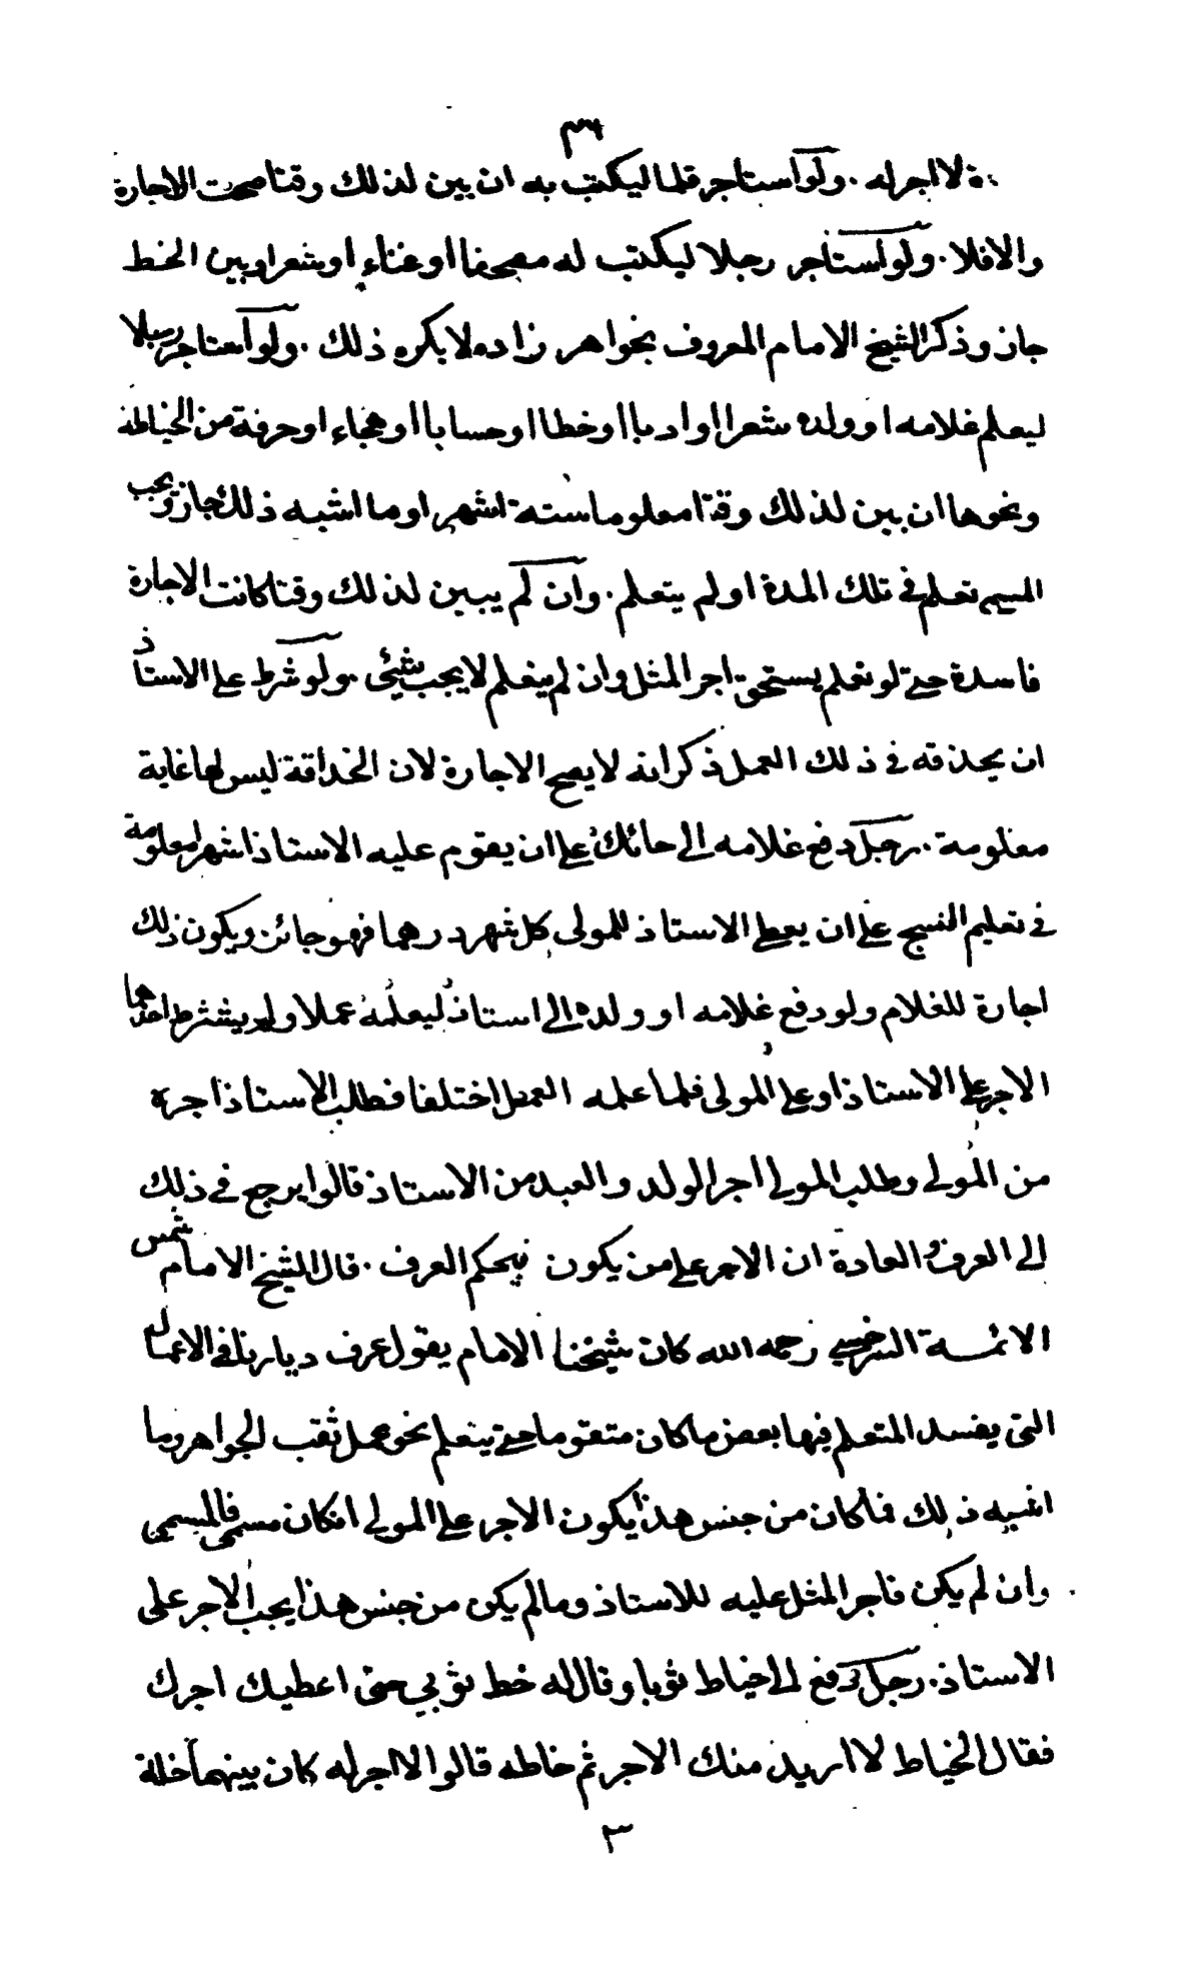 ٣٦
لا اجر له . ولو استاجر قلما ليكتب به ان بين لذلك وقتا صحت الاجارة
والا فلا . ولو استاجر رجلا ليكتب له مصحفا او غناء او شعرا وبين الخط
جاز وذكر الشيخ الامام المعروف بخواهر زاده لا يكره ذلك . ولو استاجر رجلا
ليعلم غلامه او ولده شعرا او ادبا او خطا او حسابا او هجاء او حرفة من الخياطة
ونحوها ان بين لذلك وقتا معلوما ستة اشهر او ما اشبه ذلك جاز ويجب
المسمى تعلم في تلك المدة او لم يتعلم . وان لم يبين لذلك وقتا كانت الاجارة
فاسدة حتى لو تعلم يستحق اجر المثل وان لم يتعلم لا يجب شيئ . ولو شرط على الاستاذ
ان يحذقه في ذلك العمل ذكر انه لا يصح الاجارة لان الحذاقة ليس لها غاية
معلومة . رجل دفع غلامه الى حائك على ان يقوم عليه الاستاذ اشهر معلومة
في تعليم النسج على ان يعطى الاستاذ للمولى كل شهر درهما فهو جائز ويكون ذلك
اجارة للغلام ولو دفع غلامه او ولده الى استاذ ليعلمه عملا ولم يشترط احدهما
الاجر على الاستاذ او على المولى فلما علمه العمل اختلفا فطلب الاستاذ اجره
من المولى وطلب المولى اجر الولد والعبد من الاستاذ قالوا يرجع في ذلك
الى العرف والعادة ان الاجر على من يكون فيحكم العرف . قال الشيخ الامام شمس
الائمة السرخسي رحمه الله كان شيخنا الامام يقول عرف ديارنا في الاعمال
التي يفسد المتعلم فيها بعض ما كان متقوما حتى يتعلم نحو عمل ثقب الجواهر وما
اشبه ذلك فما كان من جنس هذا يكون الاجر على المولى ان كان مسمى فالمسمى
وان لم يكن فاجر المثل عليه للاستاذ وما لم يكن من جنس هذا يجب الاجر على
الاستاذ . رجل دفع الى خياط ثوبا وقال له خط ثوبي حتى اعطيك اجرك
فقال الخياط لا اريد منك الاجر ثم خاطه قالوا لا اجر له كان بينهما خلة
٣